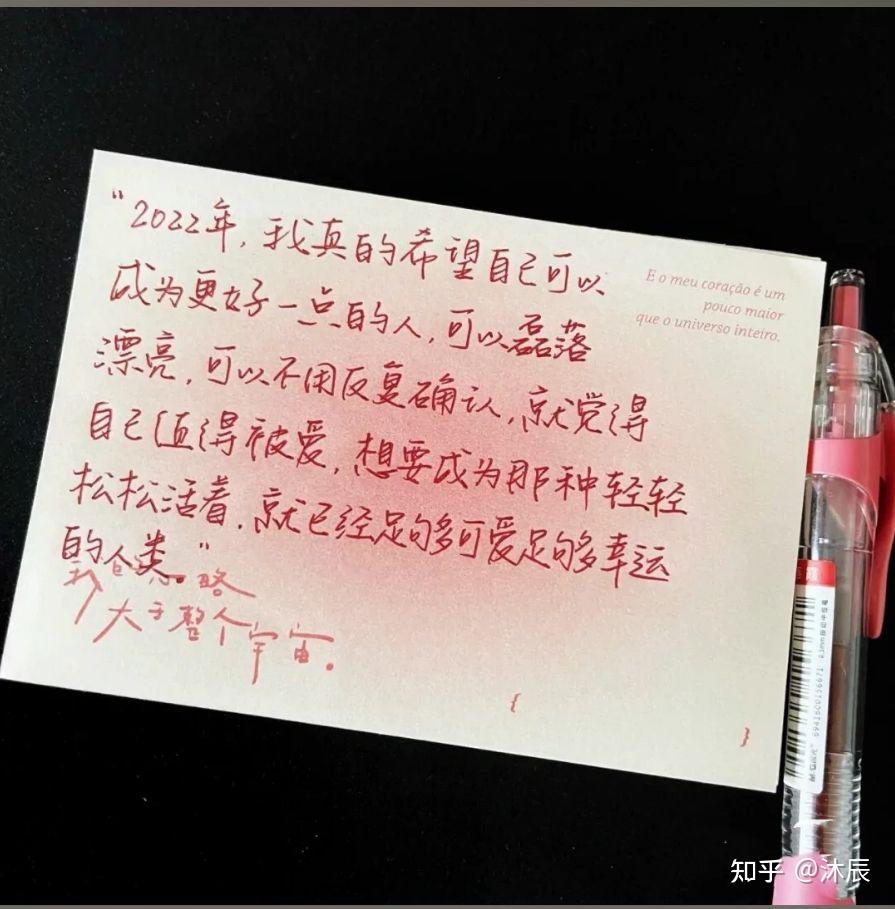 “2022年，我真的希望自己可以
成为更好一点的人，可以磊落
漂亮，可以不用反复确认，就觉得
自己值得被爱，想要成为那种轻轻
松松活着，就已经足够多可爱足够多幸运
的人类。”
E o meu coração é um
pouco maior
que o universo inteiro.
我 心 略
大于整个宇宙。
{ }
6941600156671
知乎 @沐辰